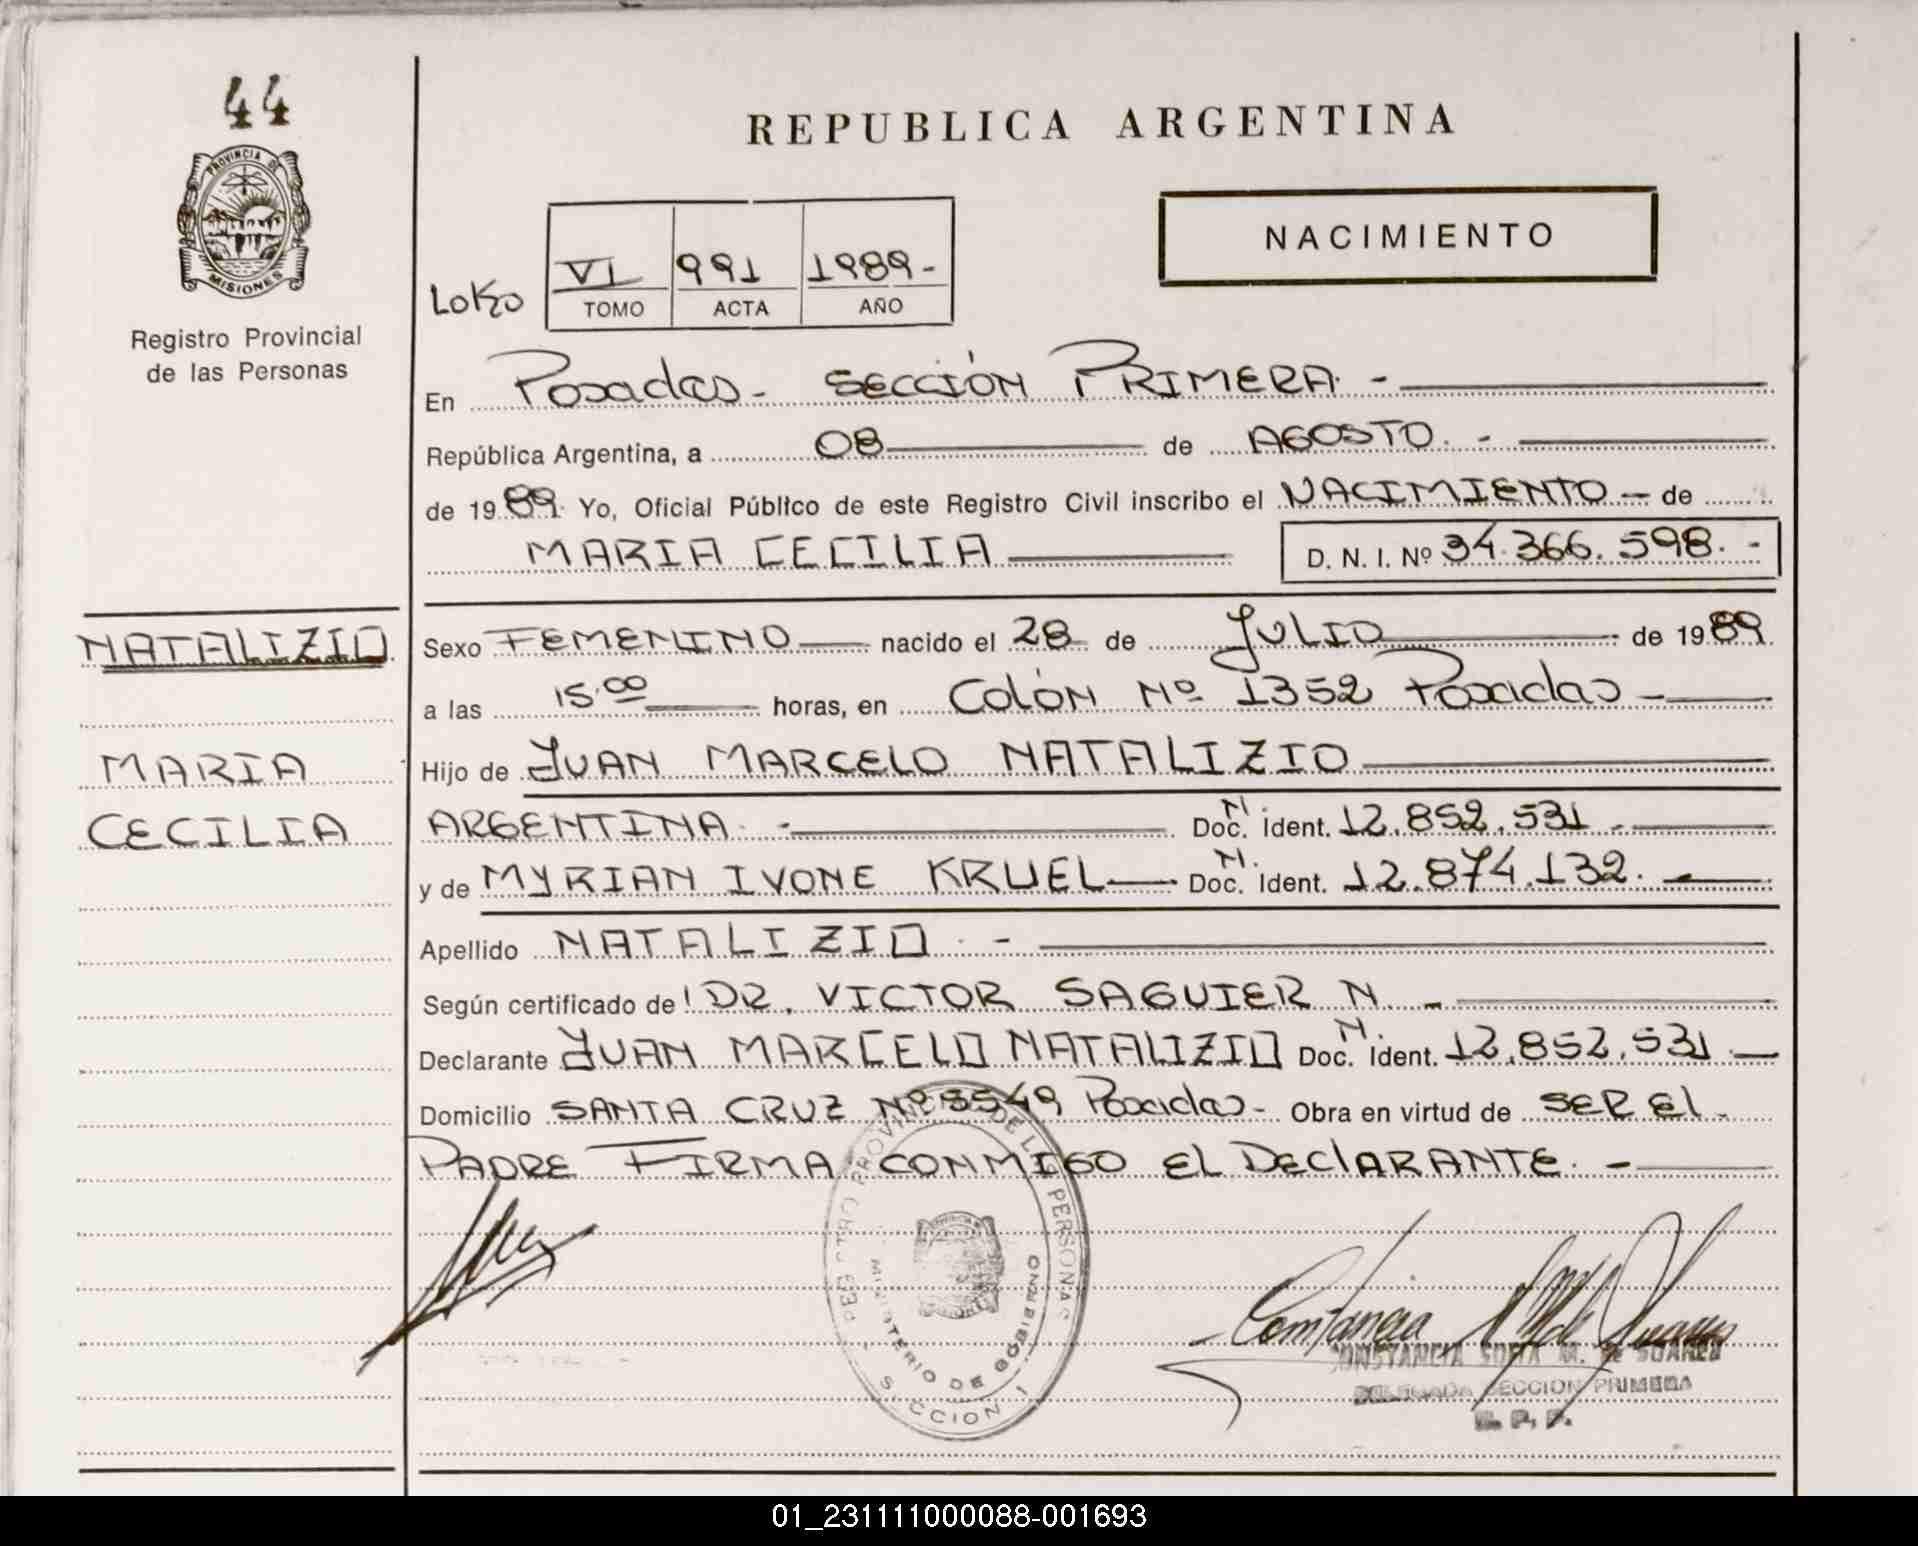 44
REPUBLICA ARGENTINA
PROVINCIA DE
MISIONES
NACIMIENTO
VI 991 1989-
TOMO ACTA AÑO
Registro Provincial
de las Personas
En Posadas- SECCIÓN PRIMERA.-
República Argentina, a 08 de AGOSTO.-
de 1989. Yo, Oficial Público de este Registro Civil inscribo el NACIMIENTO - de
MARIA CECILIA D. N. I. Nº 34.366.598.-
NATALIZIO
MARIA
CECILIA
Sexo FEMENINO nacido el 28 de JULIO de 1989.
a las 15.00 horas, en COLÓN Nº 1352 Posadas -
Hijo de JUAN MARCELO NATALIZIO
ARGENTINA.- Doc. N. Ident. 12.852.531.-
y de MYRIAN IVONE KRUEL Doc. N. Ident. 12.874.132.-
Apellido NATALIZIO.-
Según certificado de DR. VICTOR SAGUIER N.-
Declarante JUAN MARCELO NATALIZIO Doc. N. Ident. 12.852.531.-
Domicilio SANTA CRUZ Nº 5549 Posadas- Obra en virtud de SER EL
PADRE FIRMA CONMIGO EL DECLARANTE.-
REGISTRO PROVINCIAL DE LAS PERSONAS
MINISTERIO DE GOBIERNO
SECCION 1
CONSTANCIA SOFIA M. de SUAREZ
DELEGADA SECCION PRIMERA
R. P. P.
01_231111000088-001693